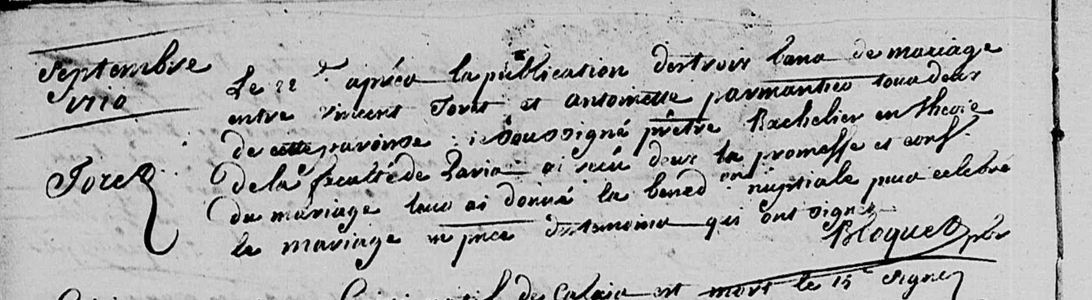 Septembre
1710
Le 22e après la publication des trois bans de mariage
entre vincent Foret et antoinette parmantier tous deux
de cette paroisse je soussigné prêtre Bachelier en theoie
Forez
de la faculté de Paris ai reçu deux la promesse et cons.
du mariage leur ai donné la bened.on nuptiale puis celebré
le mariage en pnce des temoins qui ont signez
Bloquet
de Calais est mort le 15e signé